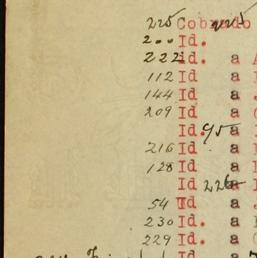 225 Cobrado 225
200 Id.
222 id. a A
112 Id a
144 Id a
209 Id a
Id. 95 a
216 Id a
128 Id a
Id 226 a
54 Id a
230 Id. a
229 Id. a
Id a